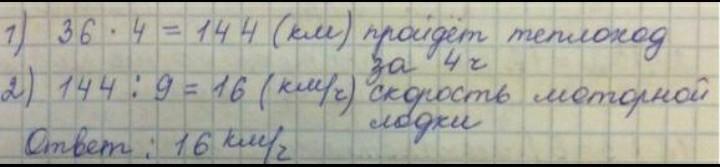 1) 36 · 4 = 144 (км) пройдёт теплоход
за 4ч
2) 144 : 9 = 16 (км/ч) скорость моторной
лодки
Ответ: 16 км/ч